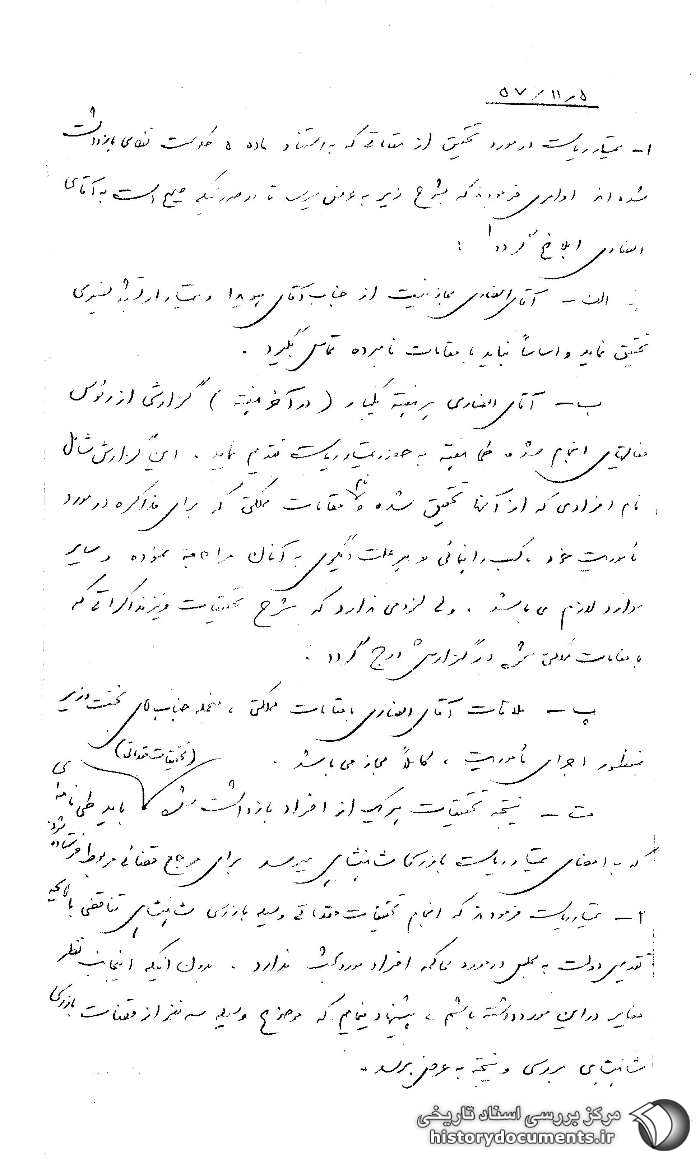 ۵۷/۱۱/۵
۱- تیمسار ریاست در مورد تحقیق از مقاماتی که به استناد ماده ۵ حکومت نظامی بازداشت
شده‌اند اوامری فرمودند که بشرح زیر به عرض میرسد تا در صورتیکه صحیح است به آقای
انصاری ابلاغ گردد :
الف - آقای انصاری مجاز نیست از جناب آقای هویدا و تیمسار ارتشبد نصیری
تحقیق نماید و اساساً نباید با مقامات نامبرده تماس بگیرد .
ب - آقای انصاری هر هفته یکبار ( در آخر هفته ) گزارشی از رئوس
فعالیتهای انجام شده طی هفته به حضور تیمسار ریاست تقدیم نماید . این گزارش شامل
نام افرادی که از آنها تحقیق شده و نام مقامات مملکتی که برای مذاکره در مورد
مأموریت خود ، کسب راهنمائی و هر علت دیگری به آنان مراجعه نموده و سایر
موارد لازم می باشد . ولی لزومی ندارد که شرح تحقیقات و نیز مذاکراتی که
با مقامات مملکتی شده در گزارش درج گردد .
پ - ملاقات آقای انصاری با مقامات مملکتی ، منجمله جناب آقای نخست وزیر
بمنظور اجرای مأموریت ، کاملاً مجاز می باشد .
ت - نتیجه تحقیقات (تحقیقات مقدماتی) هر یک از افراد بازداشت شده باید طی نامه ای
که به امضای تیمسار ریاست بازرسی شاهنشاهی میرسد برای مرجع قضائی مربوط فرستاده شود.
۲- تیمسار ریاست فرمودند که انجام تحقیقات مقدماتی وسیله بازرسی شاهنشاهی تناقضی با لایحه
تقدیمی دولت به مجلس در مورد محاکمه افراد مورد بحث ندارد . بدون اینکه اینجانب نظر
مغایر در این مورد داشته باشم ، پیشنهاد مینمایم که موضوع وسیله سه نفر از قضات بازرسی
شاهنشاهی بررسی و نتیجه به عرض برسد .
مرکز بررسی اسناد تاریخی
historydocuments.ir